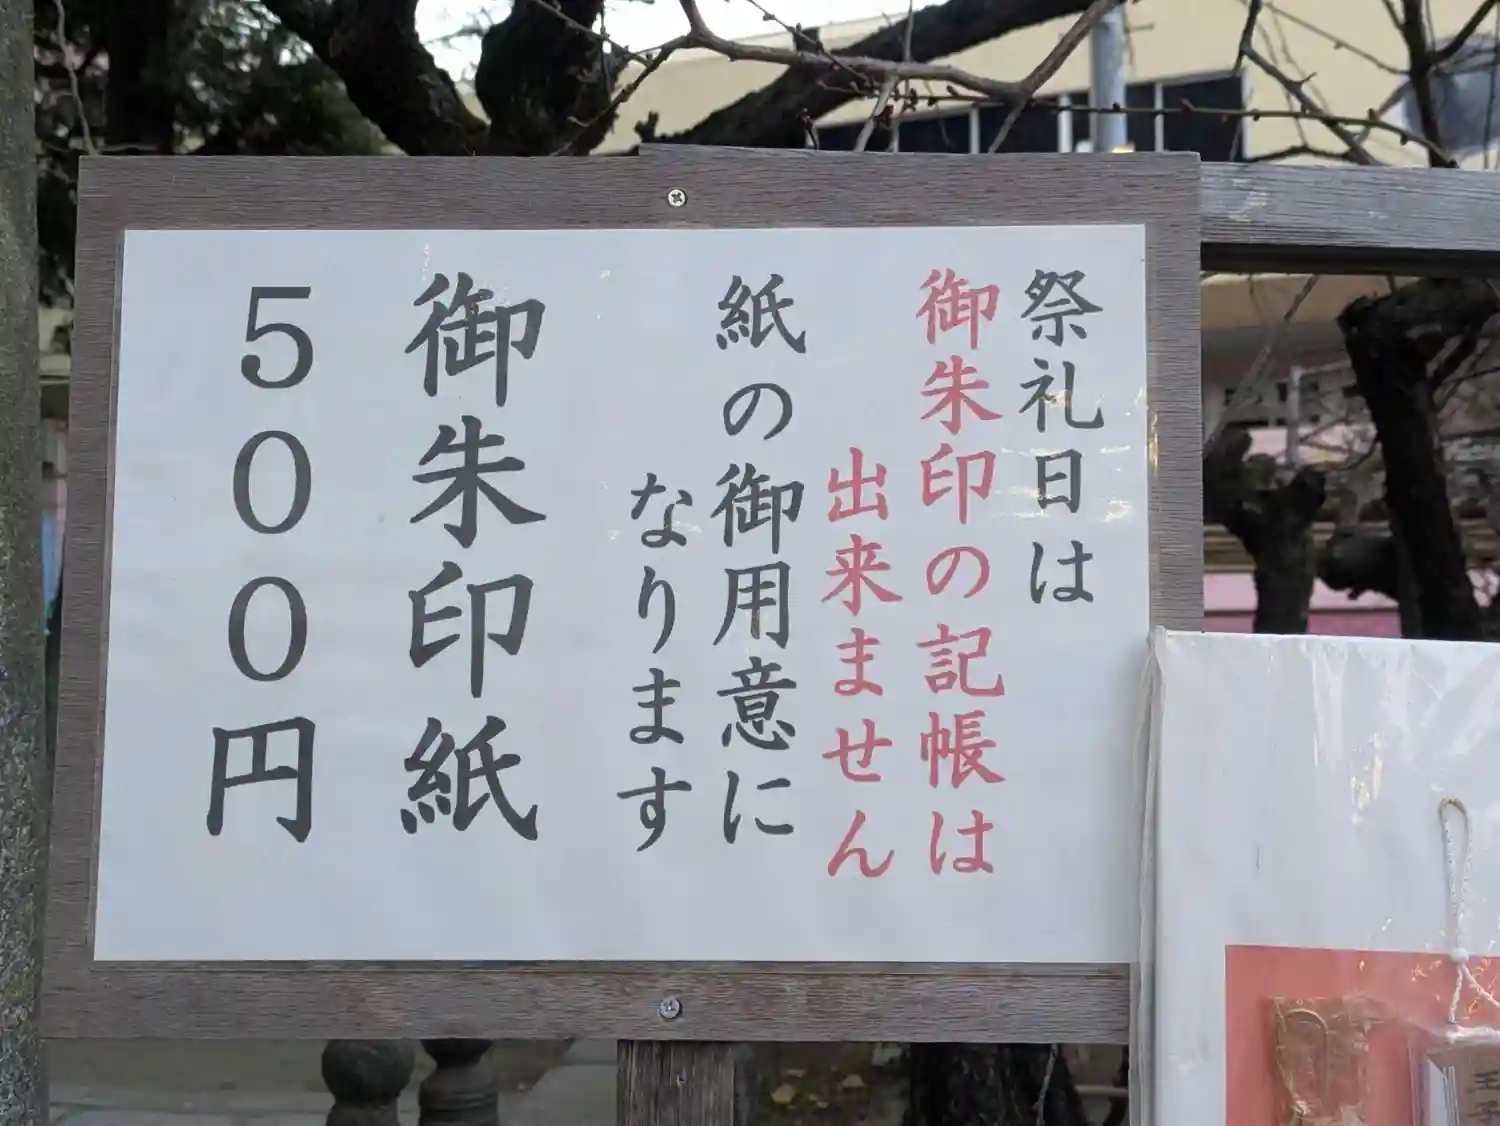 祭礼日は
御朱印の記帳は
出来ません
紙の御用意に
なります
御朱印紙
５００円